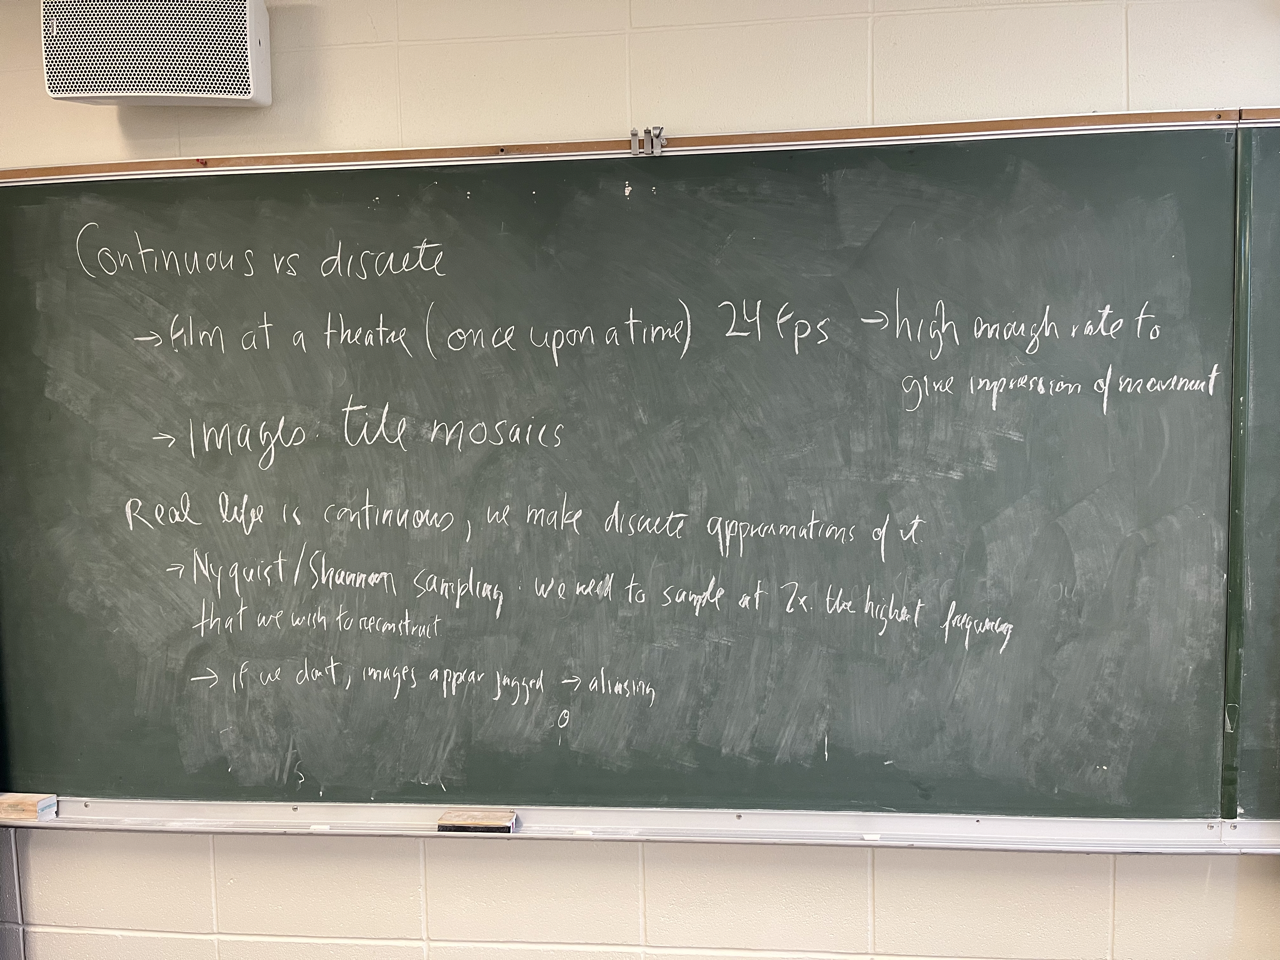 Continuous vs discrete
→ film at a theatre (once upon a time) 24 fps → high enough rate to
give impression of movement
→ Images: tile mosaics
Real life is continuous, we make discrete approximations of it.
→ Nyquist/Shannon sampling: we need to sample at 2x the highest frequency
that we wish to reconstruct
→ if we don't, images appear jagged → aliasing